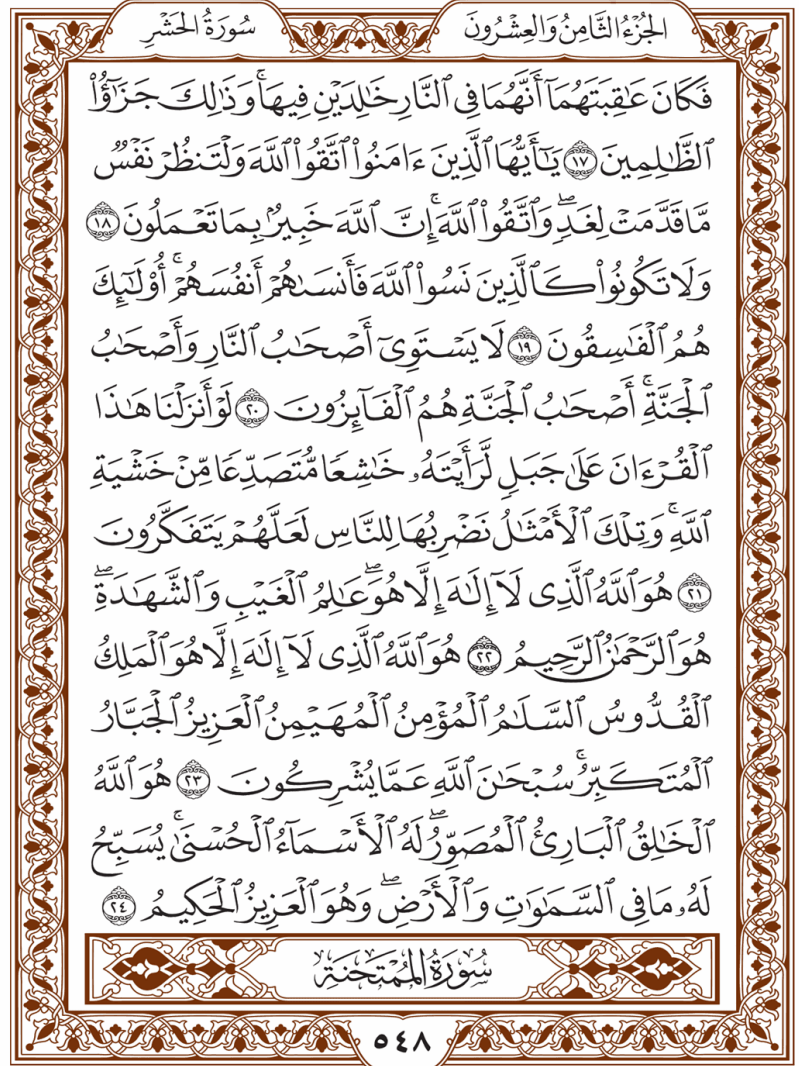 الجُزْءُ الثَّامِنُ وَالعِشْرُونَ
سُورَةُ الحَشْرِ
فَكَانَ عَٰقِبَتَهُمَآ أَنَّهُمَا فِى ٱلنَّارِ خَٰلِدَيْنِ فِيهَاۚ وَذَٰلِكَ جَزَٰٓؤُا۟
ٱلظَّٰلِمِينَ ١٧ يَٰٓأَيُّهَا ٱلَّذِينَ ءَامَنُوا۟ ٱتَّقُوا۟ ٱللَّهَ وَلْتَنظُرْ نَفْسٌ
مَّا قَدَّمَتْ لِغَدٍۖ وَٱتَّقُوا۟ ٱللَّهَۚ إِنَّ ٱللَّهَ خَبِيرٌۢ بِمَا تَعْمَلُونَ ١٨
وَلَا تَكُونُوا۟ كَٱلَّذِينَ نَسُوا۟ ٱللَّهَ فَأَنسَىٰهُمْ أَنفُسَهُمْۚ أُو۟لَٰٓئِكَ
هُمُ ٱلْفَٰسِقُونَ ١٩ لَا يَسْتَوِىٓ أَصْحَٰبُ ٱلنَّارِ وَأَصْحَٰبُ
ٱلْجَنَّةِۚ أَصْحَٰبُ ٱلْجَنَّةِ هُمُ ٱلْفَآئِزُونَ ٢٠ لَوْ أَنزَلْنَا هَٰذَا
ٱلْقُرْءَانَ عَلَىٰ جَبَلٍ لَّرَأَيْتَهُۥ خَٰشِعًا مُّتَصَدِّعًا مِّنْ خَشْيَةِ
ٱللَّهِۚ وَتِلْكَ ٱلْأَمْثَٰلُ نَضْرِبُهَا لِلنَّاسِ لَعَلَّهُمْ يَتَفَكَّرُونَ
٢١ هُوَ ٱللَّهُ ٱلَّذِى لَآ إِلَٰهَ إِلَّا هُوَۖ عَٰلِمُ ٱلْغَيْبِ وَٱلشَّهَٰدَةِۖ
هُوَ ٱلرَّحْمَٰنُ ٱلرَّحِيمُ ٢٢ هُوَ ٱللَّهُ ٱلَّذِى لَآ إِلَٰهَ إِلَّا هُوَ ٱلْمَلِكُ
ٱلْقُدُّوسُ ٱلسَّلَٰمُ ٱلْمُؤْمِنُ ٱلْمُهَيْمِنُ ٱلْعَزِيزُ ٱلْجَبَّارُ
ٱلْمُتَكَبِّرُۚ سُبْحَٰنَ ٱللَّهِ عَمَّا يُشْرِكُونَ ٢٣ هُوَ ٱللَّهُ
ٱلْخَٰلِقُ ٱلْبَارِئُ ٱلْمُصَوِّرُۖ لَهُ ٱلْأَسْمَآءُ ٱلْحُسْنَىٰۚ يُسَبِّحُ
لَهُۥ مَا فِى ٱلسَّمَٰوَٰتِ وَٱلْأَرْضِۖ وَهُوَ ٱلْعَزِيزُ ٱلْحَكِيمُ ٢٤
سُورَةُ المُمْتَحنَةِ
٥٤٨